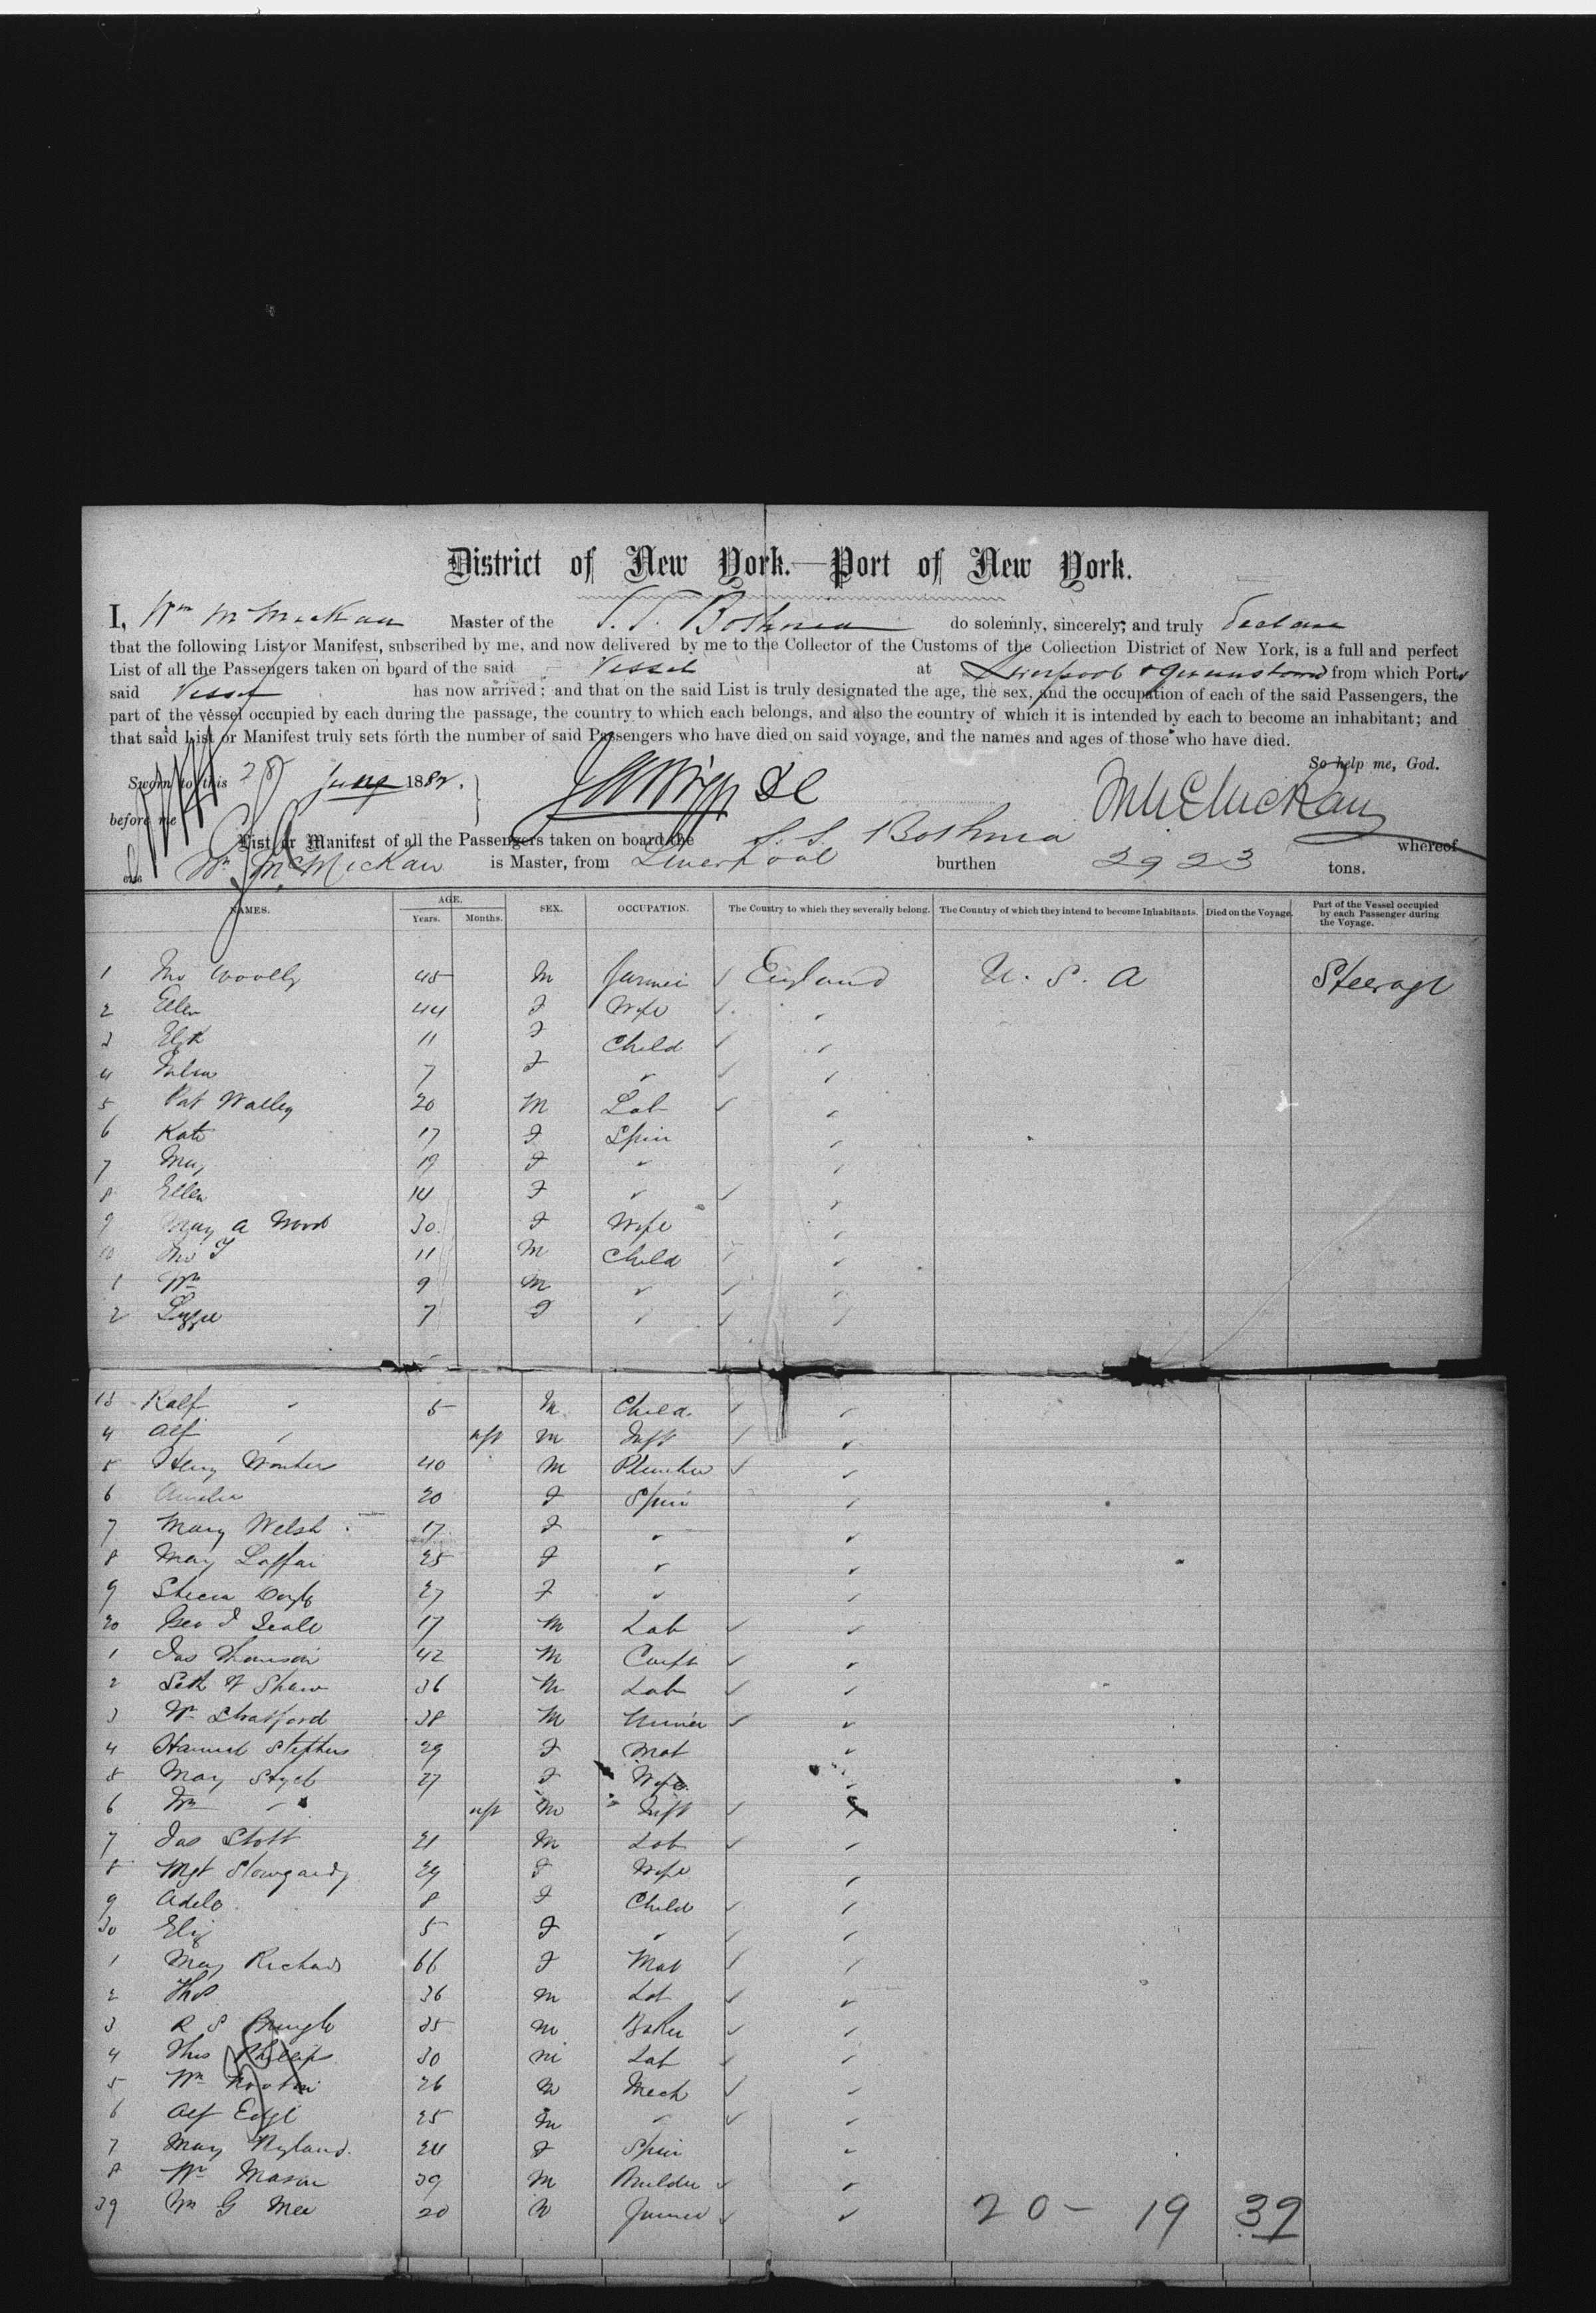 District of New York.—Port of New York.
I, Wm McMickan Master of the S.S. Bothnia do solemnly, sincerely, and truly declare
that the following List or Manifest, subscribed by me, and now delivered by me to the Collector of the Customs of the Collection District of New York, is a full and perfect
List of all the Passengers taken on board of the said Vessel at Liverpool & Queenstown from which Ports
said Vessel has now arrived; and that on the said List is truly designated the age, the sex, and the occupation of each of the said Passengers, the
part of the vessel occupied by each during the passage, the country to which each belongs, and also the country of which it is intended by each to become an inhabitant; and
that said List or Manifest truly sets forth the number of said Passengers who have died on said voyage, and the names and ages of those who have died.
So help me, God.
Sworn to this 28 June 1882.
before me
W McMickan
List or Manifest of all the Passengers taken on board the S.S. Bothnia whereof
Wm McMickan is Master, from Liverpool burthen 2923 tons.
NAMES. AGE. Years. Months. SEX. OCCUPATION. The Country to which they severally belong. The Country of which they intend to become Inhabitants. Died on the Voyage. Part of the Vessel occupied by each Passenger during the Voyage.
1 Jno Woolly 45 M Farmer England U. S. A Steerage
2 Ellen 44 F Wife
3 Eliz 11 F Child
4 7 F "
5 Pat Walley 20 M Lab
6 Kate 17 F Spin
7 May 19 F "
8 Ellen 14 F "
9 Mary A Wood 30 F Wife
10 Jno T 11 M Child
1 Wm 9 M "
2 Lizzie 7 F "
13 Ralf " 5 M Child
4 Alf " inft M Inft
5 Henry 40 M Plumber
6 Amelia 20 F Spin
7 Mary Welsh 17 F "
8 May 25 F "
9 27 F "
20 Geo 17 M Lab
1 Jas Thomson 42 M Carpt
2 Seth W Shaw 36 M Lab
3 Wm Stratford 38 M Miner
4 Hannah Stephens 29 F Mat
5 May 27 F Wife
6 Wm " inft M Inft
7 Jas Stott 21 M Lab
8 Mgt 29 F Wife
9 Adele 8 F Child
30 Eliz 5 F "
1 May Richards 66 F Mat
2 Thos 36 M Lab
3 R S Pringle 35 M Baker
4 Thos Phillips 30 M Lab
5 Wm 26 M Mech
6 Alf Edge 25 M "
7 May Ryland 24 F Spin
8 Wm Mason 39 M Builder
39 Wm G Mee 20 M Joiner 20 - 19 39